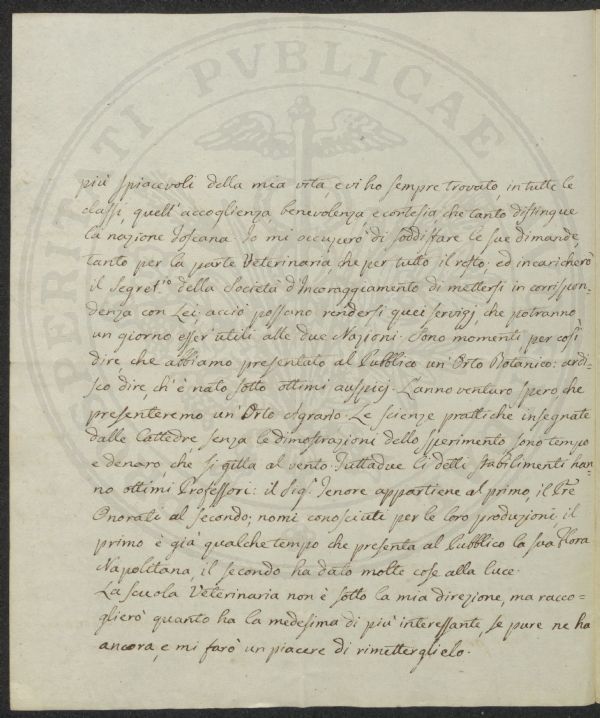 PERITATI PVBLICAE
più spiacevoli della mia vita, e vi ho sempre trovato, in tutte le
classi, quell'accoglienza, benevolenza e cortesia che tanto distingue
la nazione Toscana. Io mi occuperò di soddisfare le sue dimande,
tanto per la parte Veterinaria, che per tutto il resto; ed incaricherò
il Segret.º della Società d'Incoraggiamento di mettersi in corrispon-
denza con Lei, acciò possano rendersi quei servigj, che potranno
un giorno esser utili alle due Nazioni. Sono momenti per così
dire, che abbiamo presentato al Pubblico un'Orto Botanico: ardi-
sco dire, ch'è nato sotto ottimi auspicj. L'anno venturo spero, che
presenteremo un'Orto Agrario. Le scienze prattiche insegnate
dalle Cattedre senza le dimostrazioni dello sperimento sono tempo
e denaro, che si gitta al vento. Tuttadue li detti stabilimenti han-
no ottimi Professori: il Sig.r Tenore appartiene al primo, il P̃re
Onorati al secondo; nomi conosciuti per le loro produzioni, il
primo è già qualche tempo che presenta al Pubblico la sua Flora
Napolitana, il secondo ha dato molte cose alla luce.
La scuola Veterinaria non è sotto la mia direzione, ma racco-
glierò quanto ha la medesima di più interessante, se pure ne ha
ancora, e mi farò un piacere di rimetterglielo.